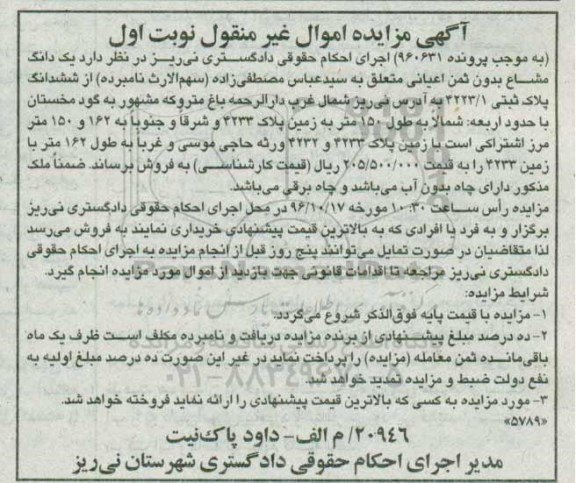 آگهی مزایده اموال غیر منقول نوبت اول
(به موجب پرونده ۹۶۰۶۳۱) اجرای احکام حقوقی دادگستری نی‌ریز در نظر دارد یک دانگ
مشاع بدون ثمن اعیانی متعلق به سیدعباس مصطفی‌زاده (سهم‌الارث نامبرده) از ششدانگ
پلاک ثبتی ۴۲۲۳/۱ به آدرس نی‌ریز شمال غرب دارالرحمه باغ متروکه مشهور به گود مخستان
با حدود اربعه: شمالاً به طول ۱۵۰ متر به زمین پلاک ۴۲۳۳ و شرقاً و جنوباً به ۱۶۲ و ۱۵۰ متر
مرز اشتراکی است با زمین پلاک ۴۲۳۳ و ۴۲۳۲ ورثه حاجی موسی و غرباً به طول ۱۶۲ متر با
زمین ۴۲۳۳ را به قیمت ۲۰۵/۵۰۰/۰۰۰ ریال (قیمت کارشناسی) به فروش برساند. ضمناً ملک
مذکور دارای چاه بدون آب می‌باشد و چاه برقی می‌باشد.
مزایده رأس ساعت ۱۰:۳۰ مورخه ۹۶/۱۰/۱۷ در محل اجرای احکام حقوقی دادگستری نی‌ریز
برگزار و به فرد یا افرادی که به بالاترین قیمت پیشنهادی خریداری نمایند به فروش می‌رسد
لذا متقاضیان در صورت تمایل می‌توانند پنج روز قبل از انجام مزایده به اجرای احکام حقوقی
دادگستری نی‌ریز مراجعه تا اقدامات قانونی جهت بازدید از اموال مورد مزایده انجام گیرد.
شرایط مزایده:
۱- مزایده با قیمت پایه فوق‌الذکر شروع می‌گردد.
۲- ده درصد مبلغ پیشنهادی از برنده مزایده دریافت و نامبرده مکلف است ظرف یک ماه
باقی‌مانده ثمن معامله (مزایده) را پرداخت نماید در غیر این صورت ده درصد مبلغ اولیه به
نفع دولت ضبط و مزایده تمدید خواهد شد.
۰۲۱-۸۸۳۴۹۶۷۰-۵
۳- مورد مزایده به کسی که بالاترین قیمت پیشنهادی را ارائه نماید فروخته خواهد شد.
«۵۷۸۹»
۲۰۹۴۶/ م الف- داود پاک‌نیت
مدیر اجرای احکام حقوقی دادگستری شهرستان نی‌ریز